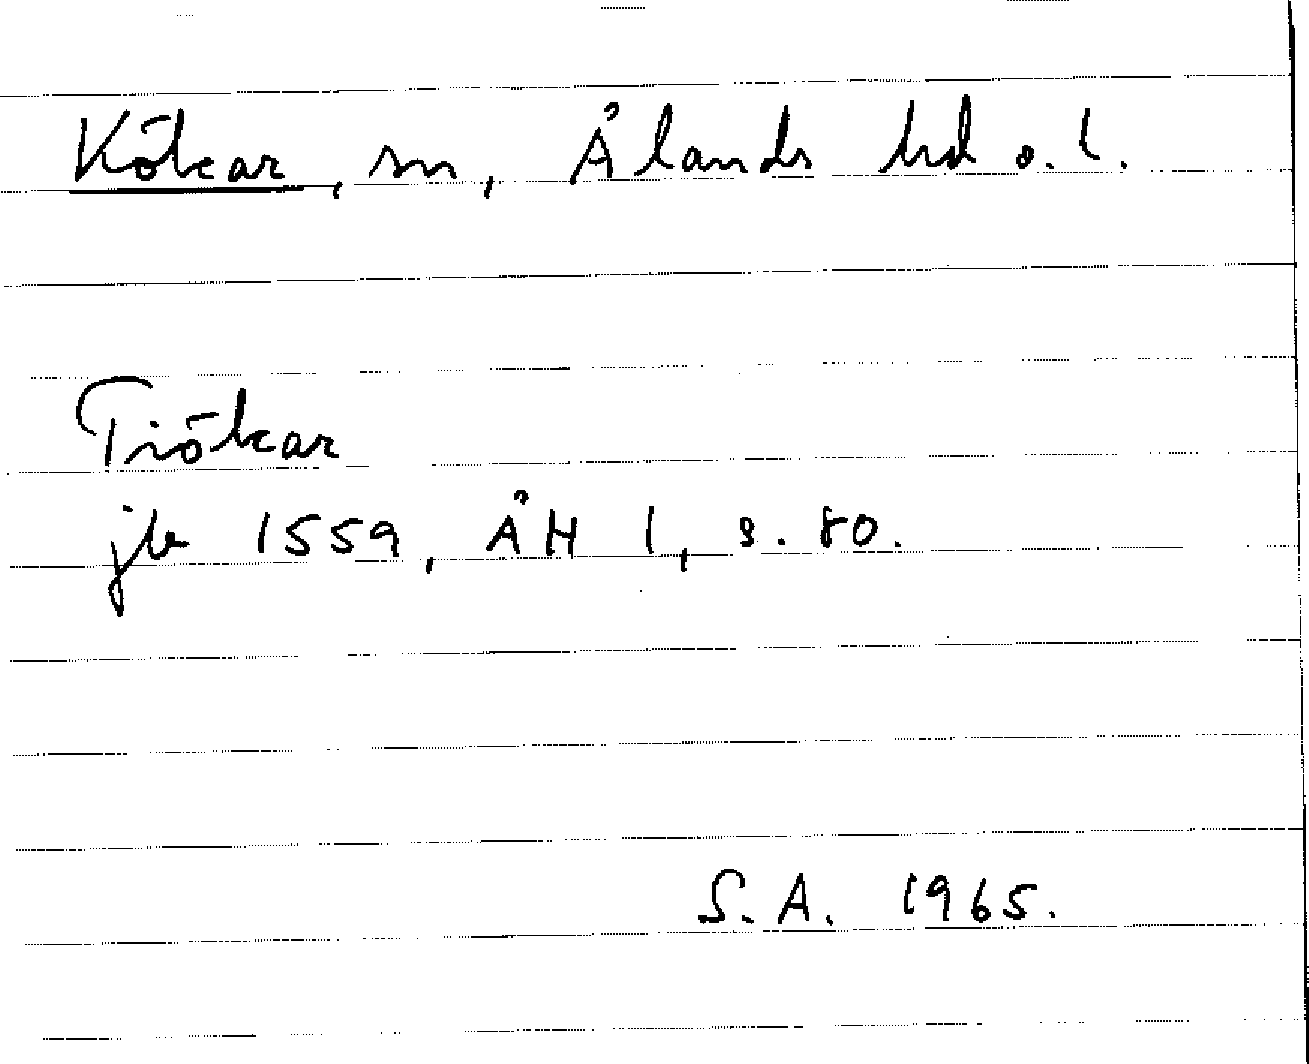 Kökar, sn, Ålands hd o. l.
Tiökar
jb 1559, ÅH 1, s. 80.
S. A. 1965.